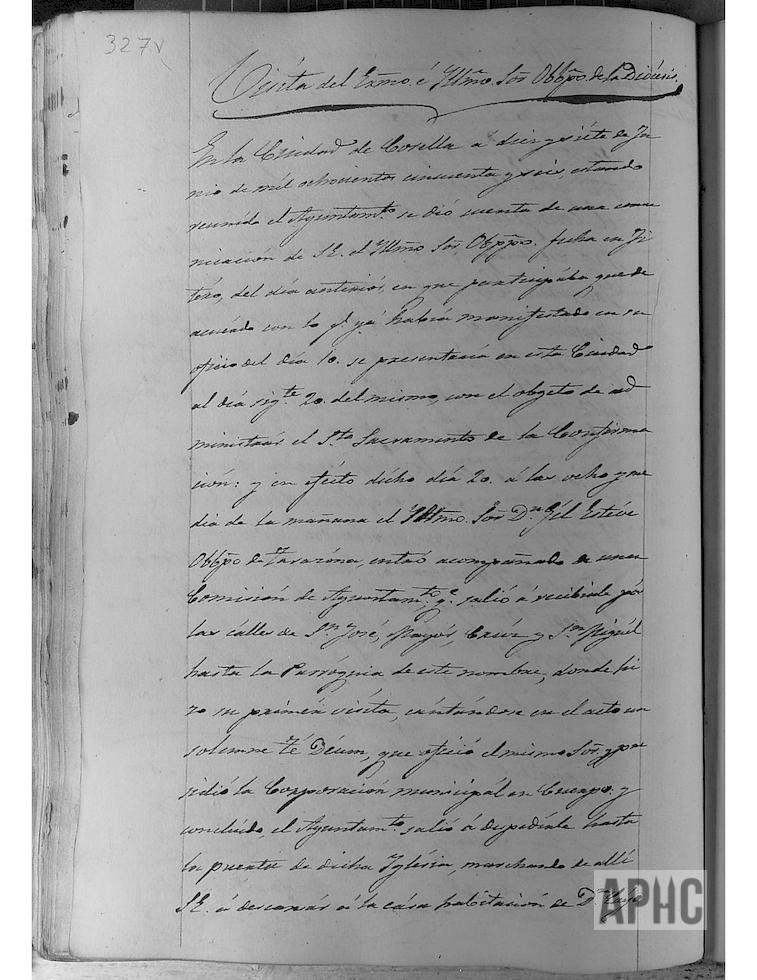 327v
Visita del Exmo. é Yltmo. Sor. Obbpo. de la Diócesis.
En la Ciudad de Corella a diez y siete de Ju
nio de mil ochocientos cincuenta y seis, estando
reunido el Ayuntamto. se dió cuenta de una comu
nicación de S.E. el Yltmo. Sor. Obppo. fecha en Fi
téro, del dia anteriór, en que participába que de
acuerdo con lo qe. yá había manifestado en su
oficio del dia 10. se presentaría en esta Ciudad
al dia sigte. 20. del mismo, con el objeto de ad
ministrár el Sto. Sacramento de la Confirma
ción: y en efécto dicho dia 20. á las ocho y me
dia de la mañana el Yltmo. Sor. Dn. Gíl Estéve
Obbpo de Tarazóna, entró acompañado de una
Comisión de Ayuntamto. qe. salió á recibirle por
las calles de Sn. José, Mayór, Crúz y Sn. Miguél
hasta la Parroquia de este nombre, donde hi
zo su primera visíta, cantándose en el acto un
solemne Té Déum, que ofició el mismo Sor. y pre
sidió la Corporación municipál en Cuerpo; y
concluído, el Ayuntamto. salió á despedirle hasta
la puerta de dicha Yglésia, marchando de allí
S.E. á descansár á la cása habitación de Dn.
APHC